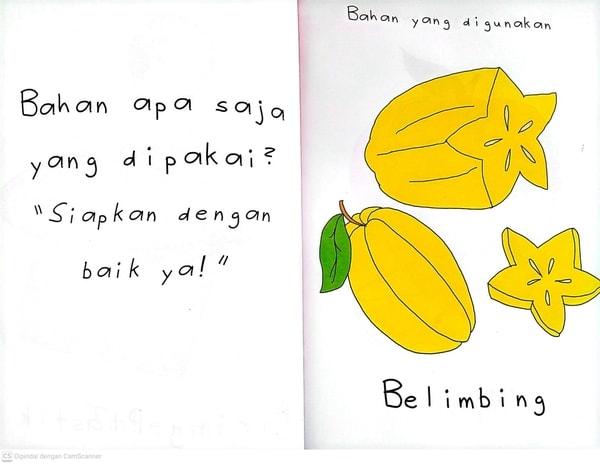 Bahan apa saja
yang dipakai?
"Siapkan dengan
baik ya!"
CS Dipindai dengan CamScanner
Bahan yang digunakan
Belimbing